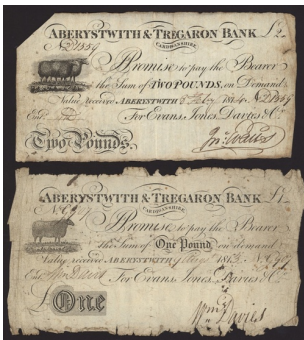 ABERYSTWITH & TREGARON BANK £2
CARDIGANSHIRE
I Promise to pay the Bearer
the Sum of TWO POUNDS, on Demand
Value received ABERYSTWITH
For Evans, Jones, Davies & Co.
Two Pounds.
ABERYSTWITH & TREGARON BANK
CARDIGANSHIRE
I Promise to pay the Bearer
the Sum of One Pound on demand
Value received ABERYSTWITH
For Evans, Jones, Davies & Co.
One
Wm Davies